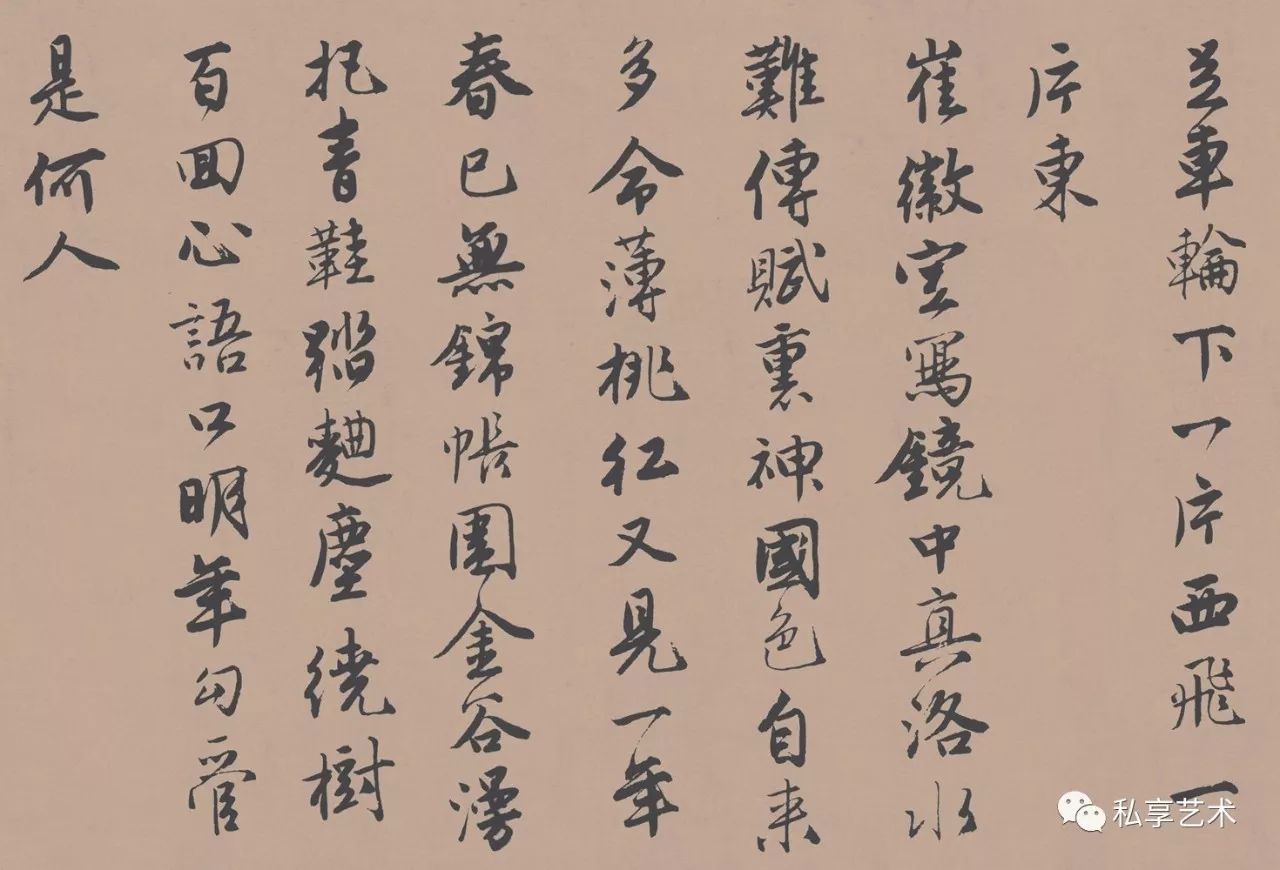 足車輪下一片西飛一
片東
崔徽空寫鏡中真洛水
難傳賦裏神國色自来
多命薄桃紅又見一年
春已無錦帳圍金谷漫
把青鞋踏麴塵繞樹
百回心語口明年勾管
是何人
私享艺术